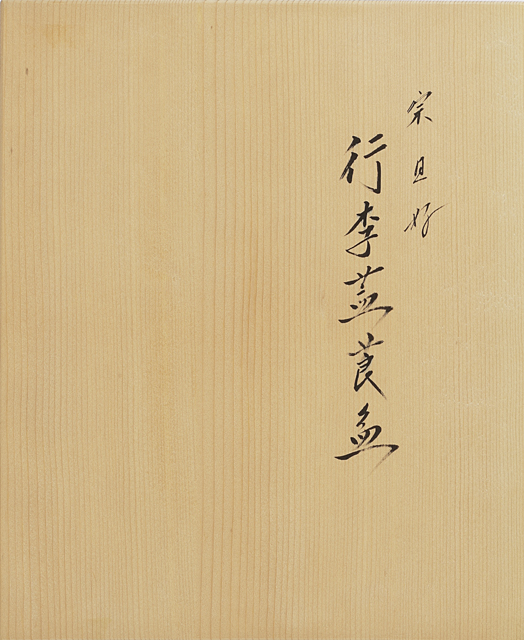 宗旦好
行李蓋莨盆